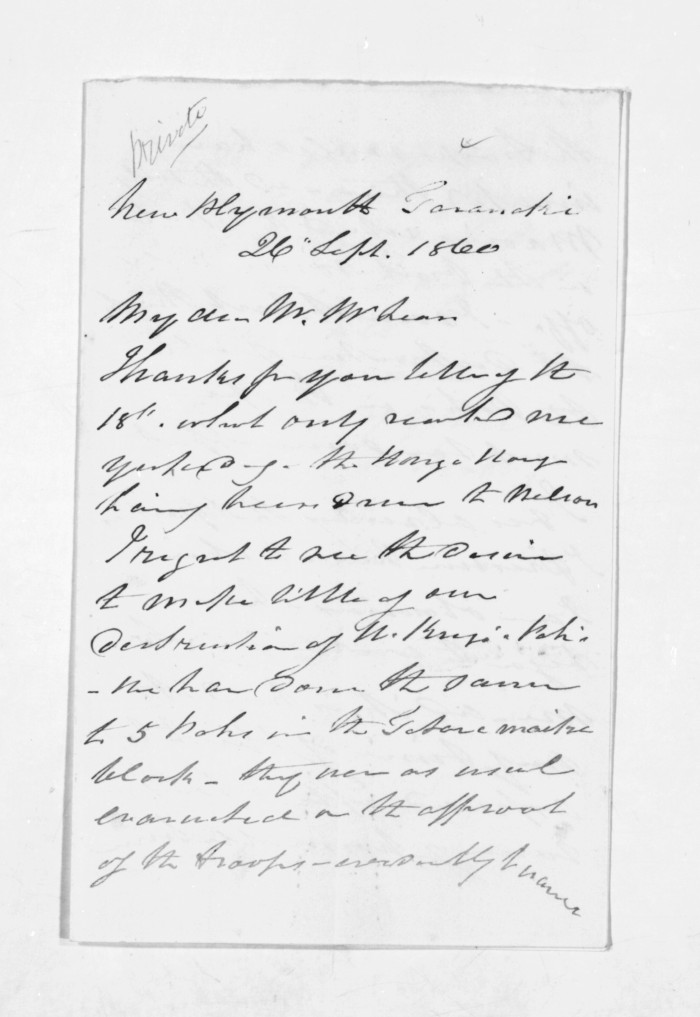 Private
New Plymouth Taranaki
26" Sept. 1860
My dear Mr. McLean
Thanks for your letter of the
18th. which only reached me
yesterday - the Wonga Wonga
having been down to Nelson
I regret to see the desire
to make little of our
destruction of W. King's Pahs
- We have done the same
to 5 Pahs in the Tataraimaka
block - they were as usual
evacuated on the approach
of the troops - evidently